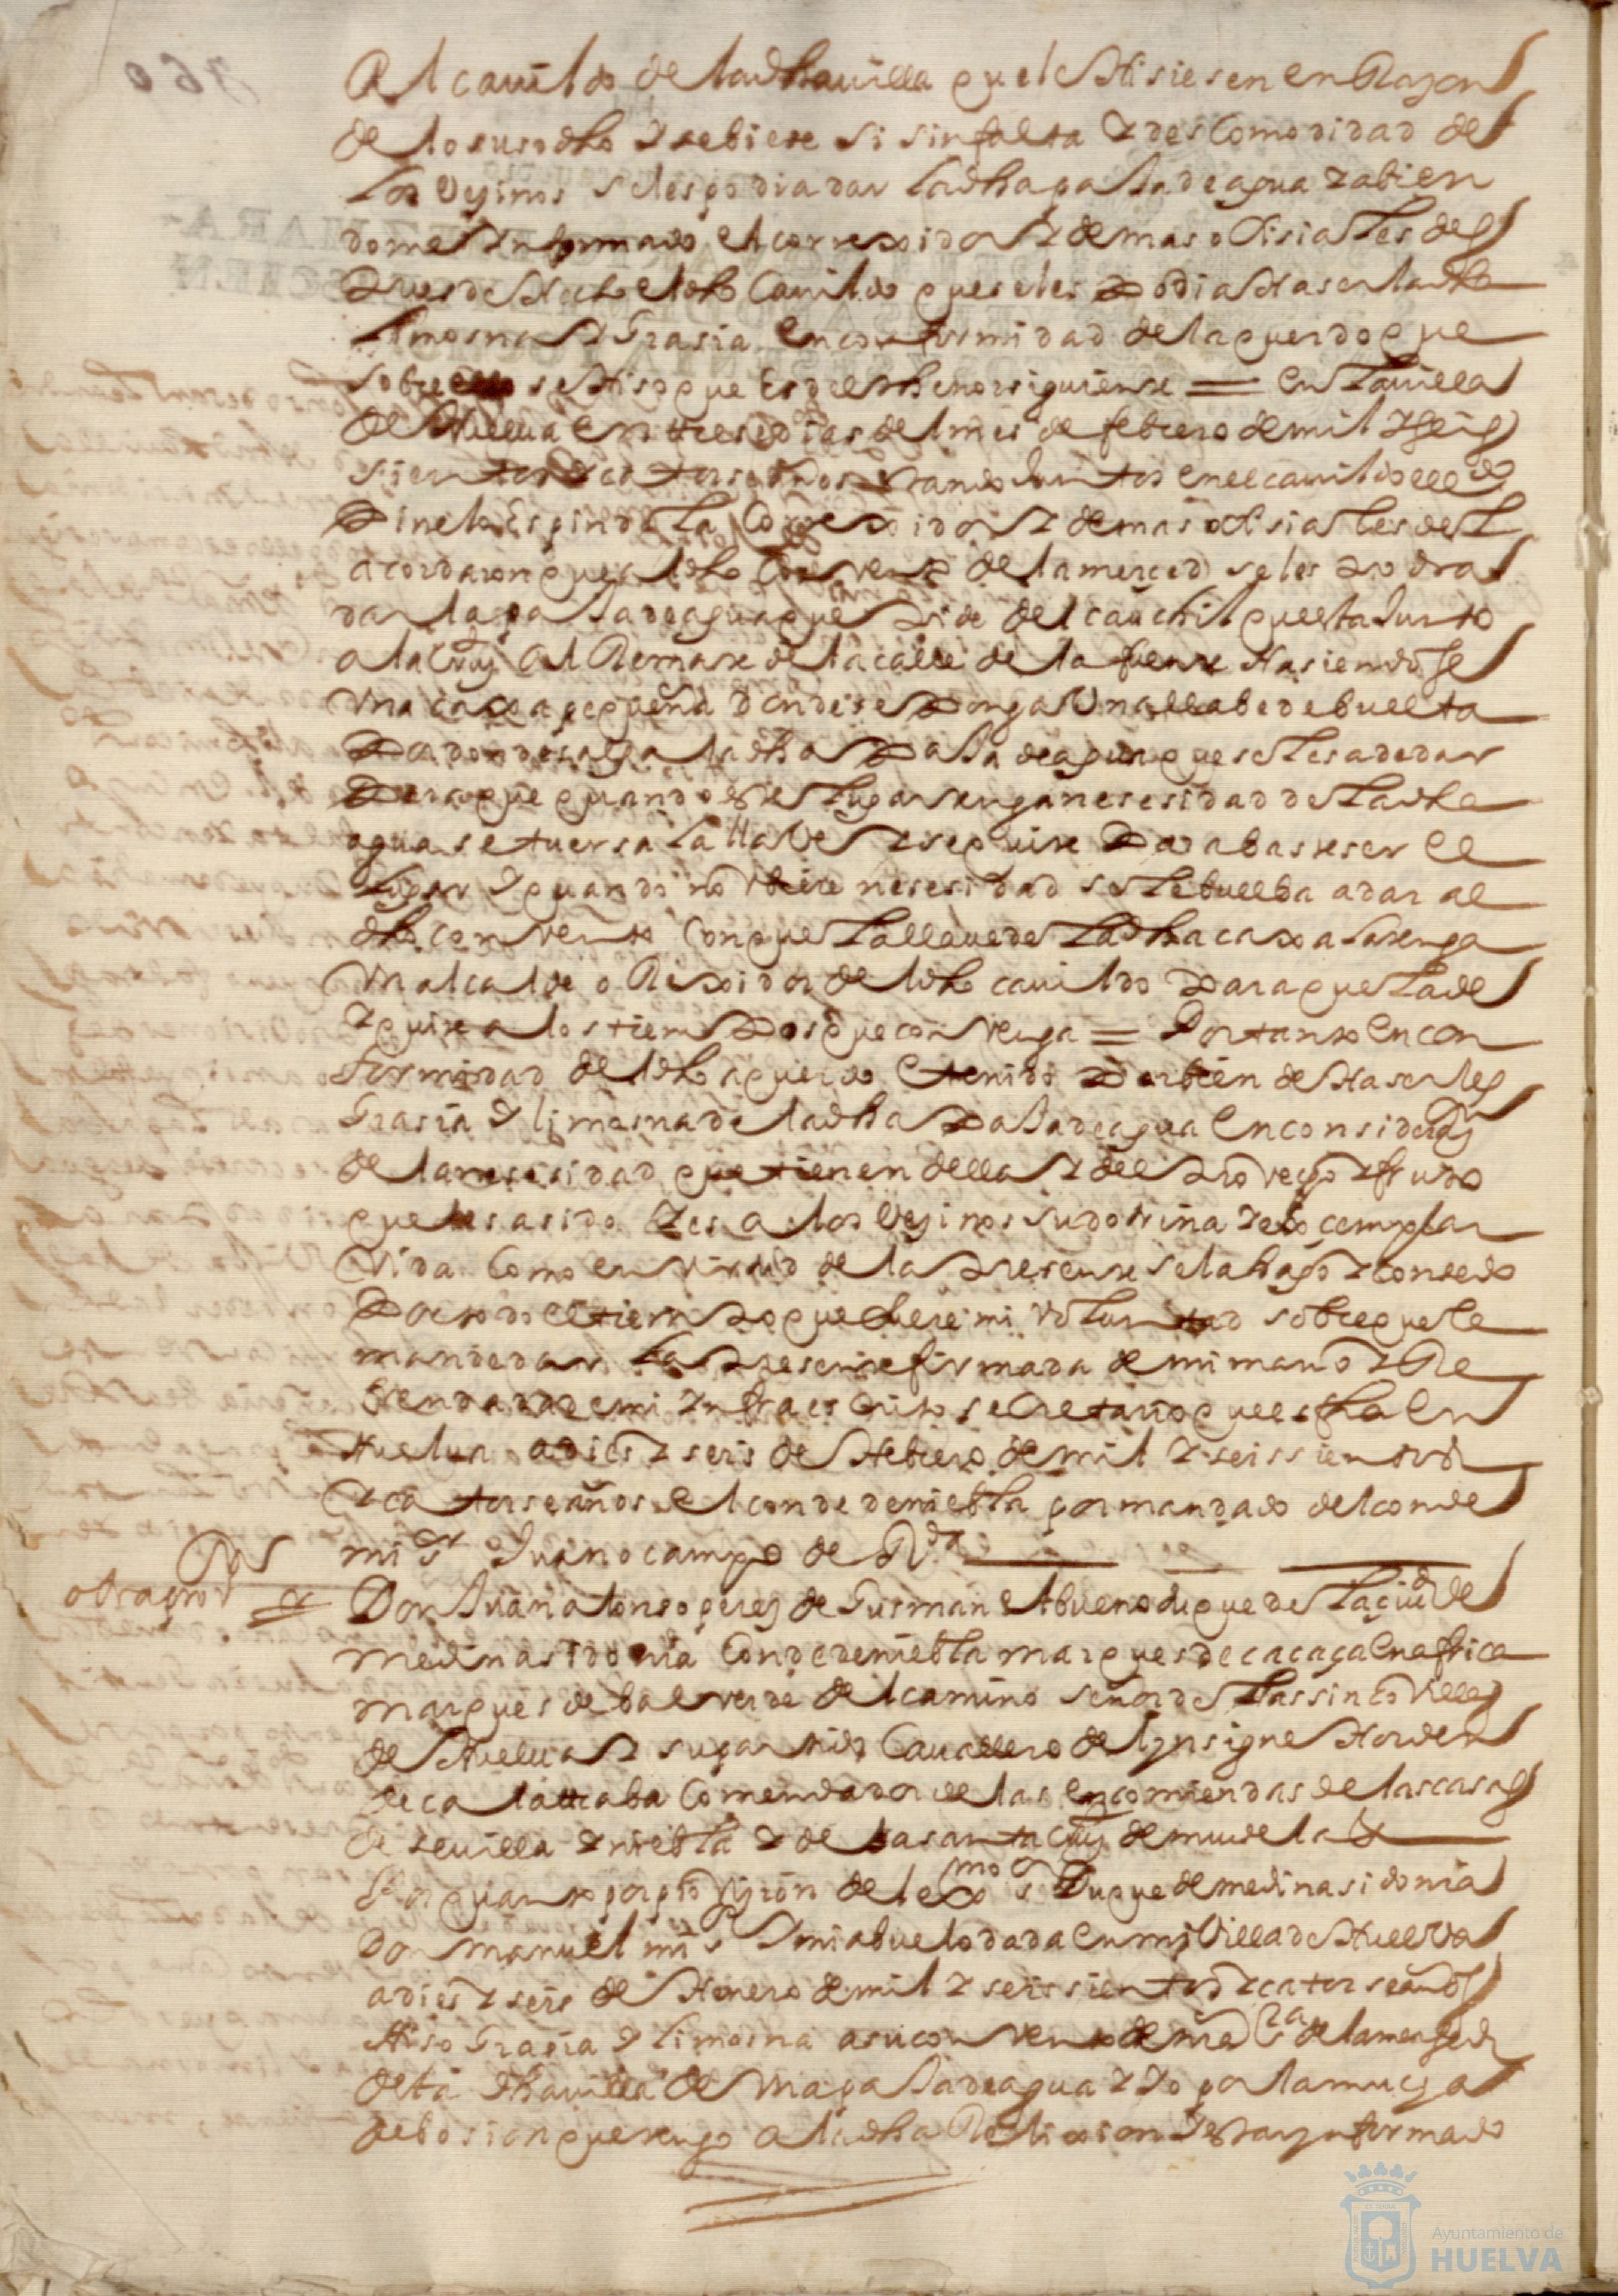 Al cauildo de la dha uilla que lettisiesen en Rason
de lo susodho y se biere si sin falta y descomodidad de
los Vesinos se les podia dar la dha paja de agua y abien
dome ynformado el corregidor y demas ofisiales del
pues de Hecho el dho Cauildo que se les podia Haser la dha
limosna y Grasia en conformidad del aquerdo que
sobre ello se Hiso que es del thenor siguiente = en la uilla
de Huelua en trese dias del mes de febrero de mil y seis
sientos y catorse años estando Juntos en el cauildo el ldo
Pinelo Espindola Corregidor y demas ofisiales del
acordaron que al dho Convento de la merced se les podra
dar la paja de agua que pide del cauchil que esta Junto
a la Cruz Al Remate de la calle de la fuente Hasiendose
Vna caxa pequeña donde se ponga Vna llabe de buelta
Por donde salga la dha Paja de agua que se les a de dar
Para que quando este lugar tenga nesesidad de la dha
agua se tuersa la llaue y se quite Para abasteser el
lugar y quando no tubiere nesesidad se le buelba a dar al
dho conuento Con que la llaue de la dha caxa la tenga
Vn alcalde o Regidor del dho cauildo para que la de
y quite a los tiempos que convenga = Por tanto en con
formidad del dho aquerdo e tenido por bien de Haserles
Grasia y limosna de la dha Paja de agua en considerason
de la nesesidad que tienen della y del provecho y fruto
que les a sido y es a los Vesinos su dotrina y exemplar
Vida Como en virtud de la presente se la hago y consedo
Por todo el tiempo que fuere mi Voluntad sobre que le
mande dar la presente firmada de mi mano y Re
frendada de mi ynfraescrito secretario que es fha en
Huelua a dies y seis de Hebrero de mil y seissientos
y catorse años el conde de niebla por mandado del conde
mi sr Juan ocampo de Rda
otra prouon Don Juan alonso peres de Gusman el bueno duque de la çiud de
medinasidonia Conde de niebla marques de caçaça en africa
marques de balverde del camino señor de las sinco villas
de Huelua y su partido Cauallero del ynsigne Horden
de calatraba Comendador de las encomiendas de las casas
de seuilla y niebla y de la santa Cruz de mudela &
Por quanto por prouision del exmo sr Duque de medina sidonia
Don manuel mi sr y mi abuelo dada en mi Villa de Huelva
a dies y seis de Henero de mil y seissientos y catorse años
Hiso Grasia y limosna a su convento de nra sra de la merçed
de la dha uilla de Vna paja de agua y yo por la mucha
debosion que tengo a la dha Relixion y estar ynformado
Ayuntamiento de
HUELVA